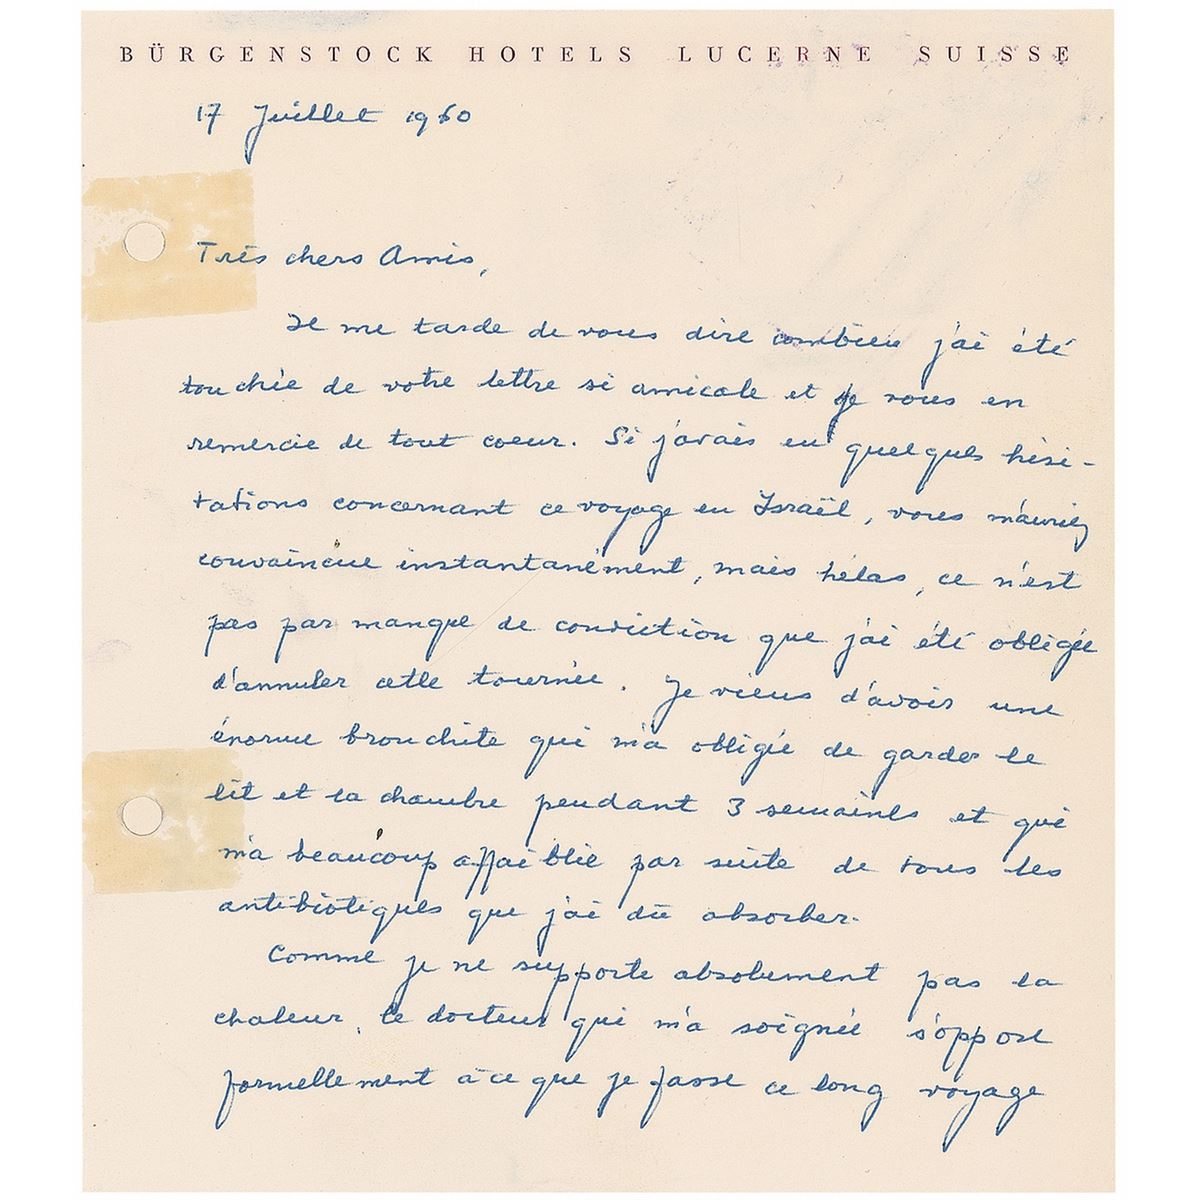 BÜRGENSTOCK HOTELS LUCERNE SUISSE
17 Juillet 1960
Très chers Amis,
Il me tarde de vous dire combien j'ai été
touchée de votre lettre si amicale et je vous en
remercie de tout coeur. Si j'avais eu quelques hési-
tations concernant ce voyage en Israël, vous m'auriez
convaincue instantanément, mais hélas, ce n'est
pas par manque de conviction que j'ai été obligée
d'annuler cette tournée. Je viens d'avoir une
énorme bronchite qui m'a obligée de garder le
lit et la chambre pendant 3 semaines et qui
m'a beaucoup affaiblie par suite de tous les
antibiotiques que j'ai dû absorber.
Comme je ne supporte absolument pas la
chaleur, le docteur qui m'a soignée s'oppose
formellement à ce que je fasse ce long voyage